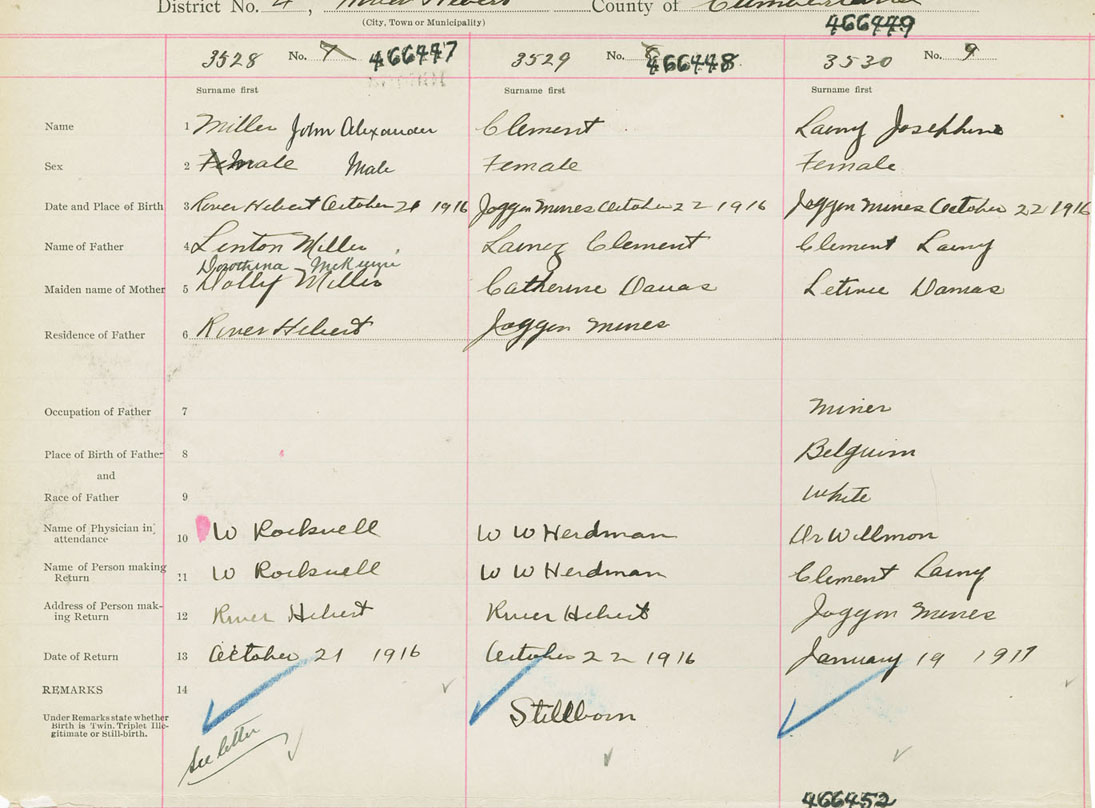 District No. 4, River Hebert County of Cumberland
(City, Town or Municipality)
466449
3528 No. 7 466447 3529 No. 8 466448 3530 No. 9
Surname first Surname first Surname first
Name 1 Miller John Alexander Clement Lainy Josephine
Sex 2 Female Male Female Female
Date and Place of Birth 3 River Hebert October 21 1916 Joggon Mines October 22 1916 Joggon Mines October 22 1916
Name of Father 4 Linton Miller Lainez Clement Clement Lainy
Dorothina
Maiden name of Mother 5 Dolly Miller Catherine Davas Letivie Damas
Residence of Father 6 River Hebert Joggon Mines
Occupation of Father 7 Miner
Place of Birth of Father 8 Belguim
and
Race of Father 9 White
Name of Physician in attendance 10 W Rockwell W W Herdman Dr Willmon
Name of Person making Return 11 W Rockwell W W Herdman Clement Lainy
Address of Person mak-
ing Return 12 River Hebert River Hebert Joggon Mines
Date of Return 13 October 21 1916 October 22 1916 January 19 1917
REMARKS 14
Under Remarks state whether
Birth is Twin, Triplet Ille-
gitimate or Still-birth.
Stillborn
See letter
466452